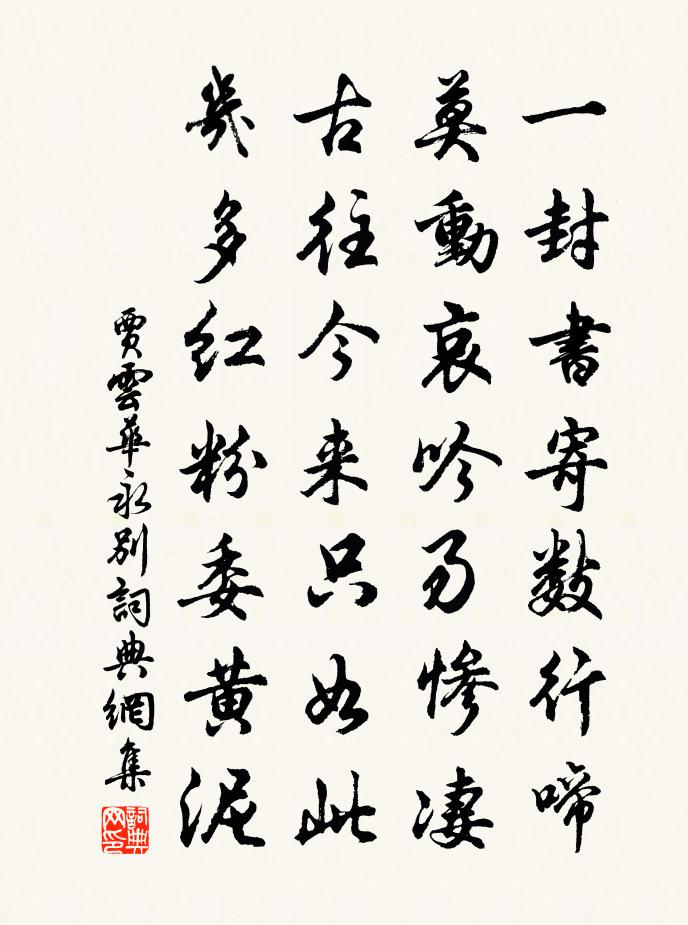 一封書寄數行啼
莫動哀吟易慘凄
古往今来只如此
幾多紅粉委黄泥
賈雲華永別詞典網集
詞典网印